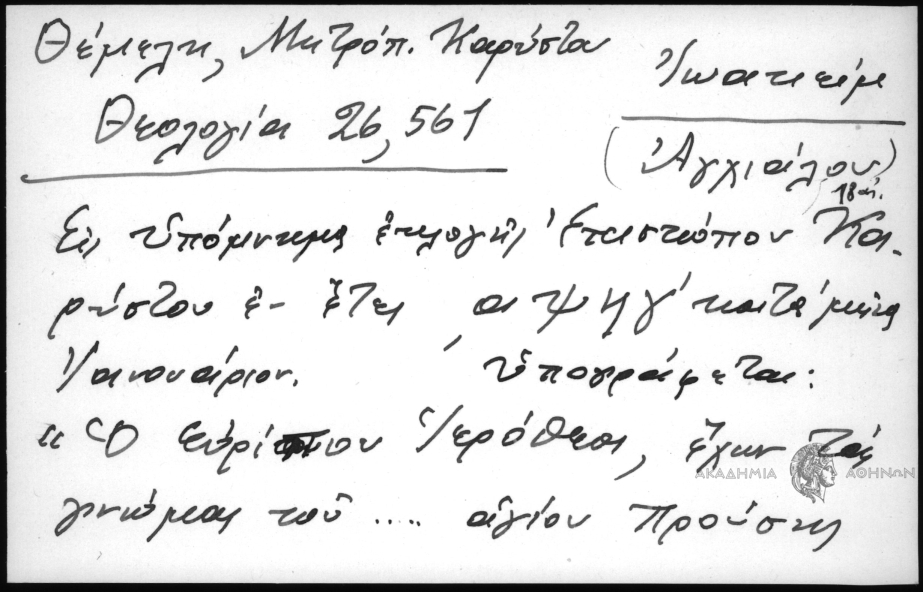 Θέμελη, Μητρόπ. Καρύστου
Θεολογία 26, 561
Ἰωακείμ
(Ἀγχιάλου)
18 αἰ.
Εἰς ὑπόμνημα ἐκλογῆς Ἐπισκόπου Κα-
ρύστου ἐν ἔτει ͵αψηγʹ κατὰ μῆνα
Ἰανουάριον. Ὑπογράφεται:
« Ὁ Εὐρίπου Ἱερόθεος, ἔχων τὰς
γνώμας τοῦ ..... ἁγίου Προύσης
ΑΚΑΔΗΜΙΑ ΑΘΗΝΩΝ